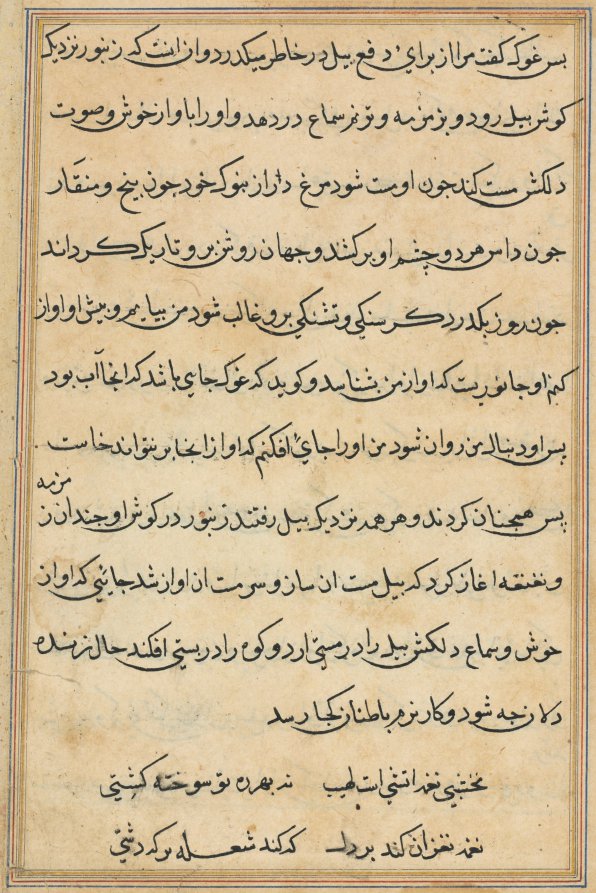 پس غوک گفت مرا از برای دفع پیل در خاطر میگذرد و آن اینست که زنبور نزدیک
گوش پیل رود و بزمزمه و ترنم سماع در دهد و او را باواز خوش و صوت
دلکش مست کند چون او مست شود مرغ دراز نوک خود چون بیخ و منقار
چون داس هر دو چشم او برکشد و جهان روشن برو تاریک کرداند
چون روز بگذرد گرسنگی و تشنگی برو غالب شود من بیایم و پیش او اواز
کنم او جانوریست که اواز من بشناسد و گوید که غوک جایی باشد که انجا آب بود
پس او دنبال من روان شود من او را جایی افکنم که او از انجا بر نتواند خاست
پس همچنان کردند و هر همه نزدیک پیل رفتند زنبور در گوش او چندان زمزمه
و نغنغه اغاز کرد که پیل مست ان ساز و سرمست ان اواز شد جائی که اواز
خوش و سماع دلکش پیل را در مستی ارد و کوه را در پستی افکند حال زنده
دلان چه شود و کار نرم باطنان کجا رسد
نخشبی نغمه اتشی است طیب نه بهرزه تو سوخته گشتی
نغمه نغز ان کند بر دل که کند شعله بر که دشتی